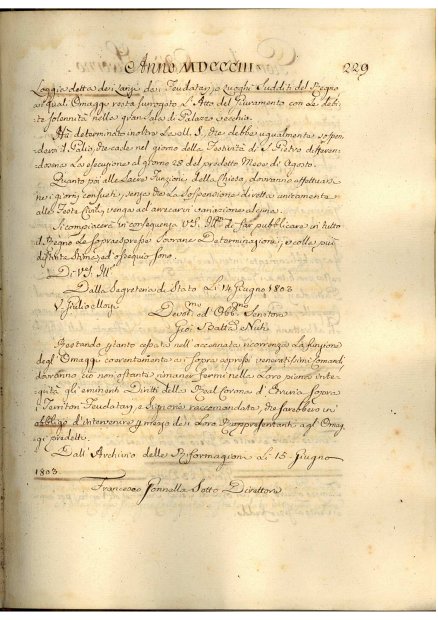 Anno MDCCCIII
229
Loggia detta de' Lanzi da i Feudatarj, o Luoghi Sudditi del Regno,
ai quali Omaggi resta surrogato l'Atto del Giuramento con le debi-
te solennità nella gran Sala di Palazzo vecchio.
Ha determinato inoltre la M. S. che debba ugualmente sospen-
dersi il Palio, che cade nel giorno della Festività di S. Pietro differen-
dosene la esecuzione al giorno 28 del predetto Mese di Agosto.
Quanto poi alle Sacre Funzioni della Chiesa, dovranno effettuarsi
ne i giorni consueti, senza che la sospensione diretta unicamente
alle Feste Civili, venga ad arrecarvi variazione alcuna.
Si compiacerà in conseguenza VS. Ill. di far pubblicare in tutto
il Regno le sopra espresse Sovrane Determinazioni, e colla più
distinta stima, ed ossequio sono
Di VS. Ill.
Dalla Segreteria di Stato li 14 Giugno 1803
V. Giulio Mozzi Devot.mo ed Obb.mo Servitore
Gio: Batta Nuti
Restando pertanto cessata nell'accennata ricorrenza la funzione
degl'Omaggi coerentemente ai sopra espressi veneratissimi comandi
dovranno ciò non ostante rimaner fermi nella loro piena inte-
grità gli eminenti Diritti della Real Corona d'Etruria sopra
i Territorj Feudatarj, e Signorie raccomandate, che sarebbero in
obbligo d'intervenire per mezzo de i Loro Rappresentanti agl'Omag-
gi predetti.
Dall'Archivio delle Riformagioni li 15 Giugno
1803.
Francesco Sotto Direttore